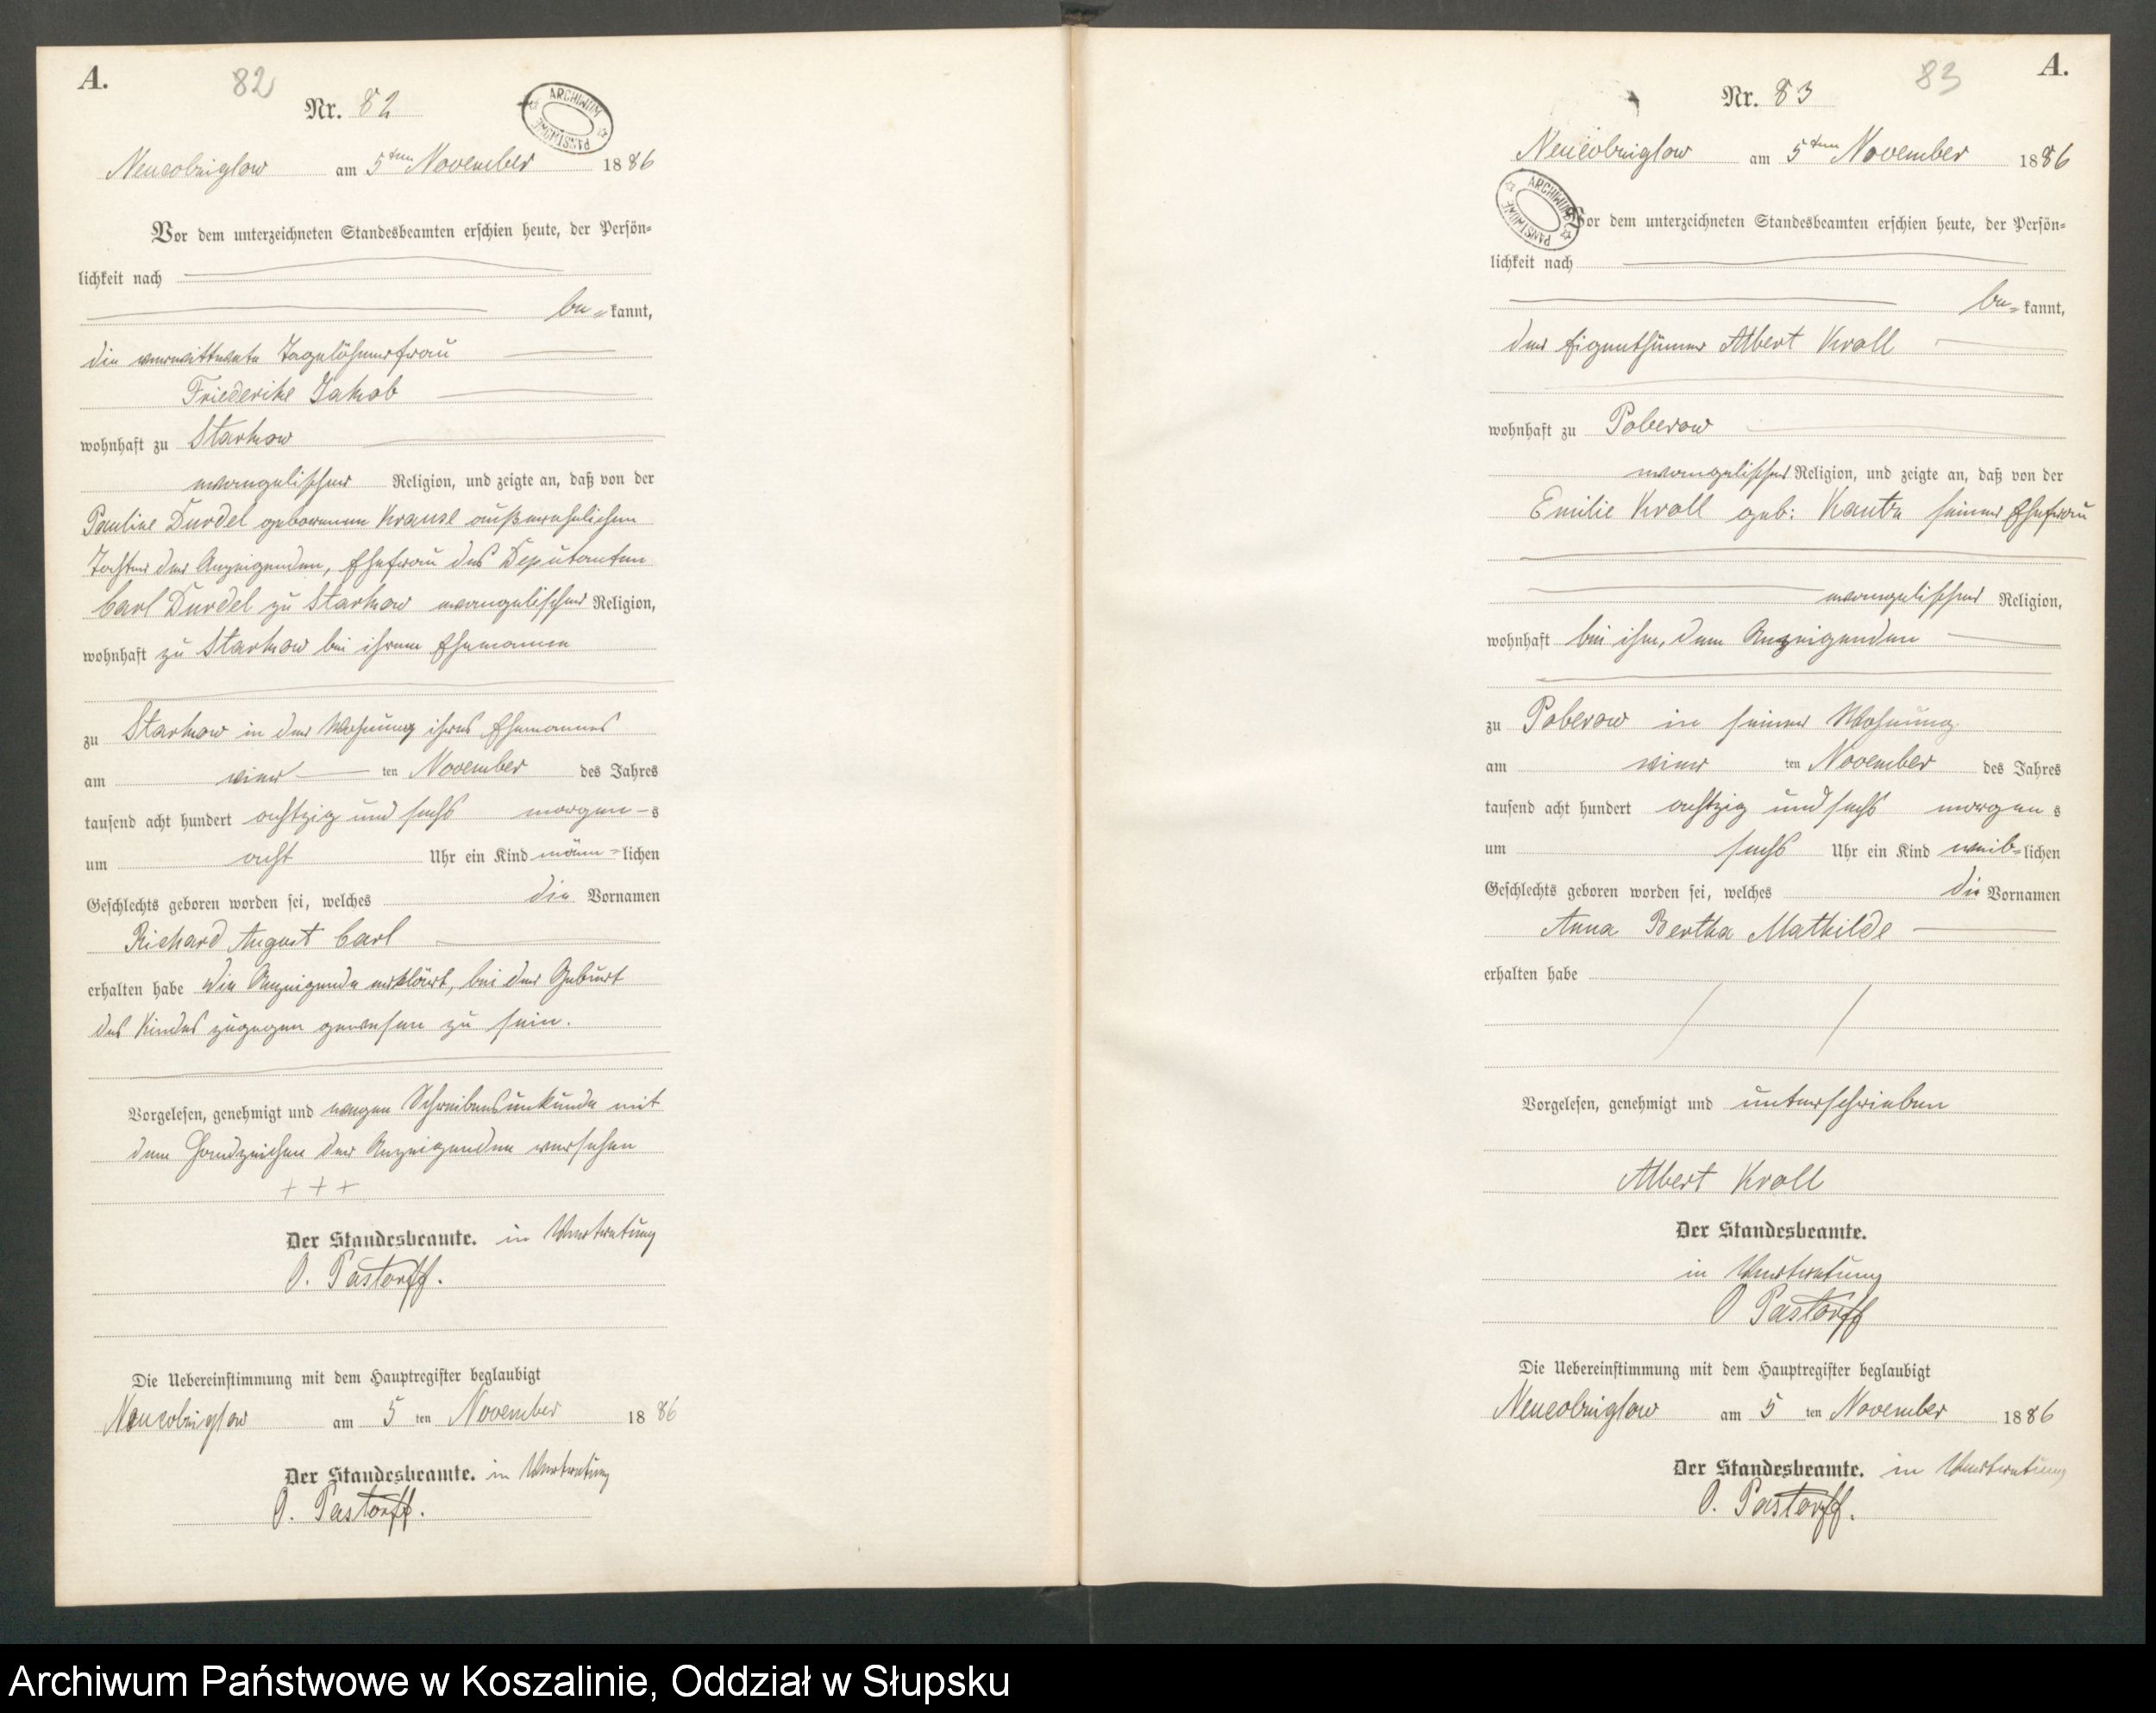 A.
82
Nr. 82
ARCHIWUM PAŃSTWOWE
Neucolziglow am 5ten November 1886
Vor dem unterzeichneten Standesbeamten erschien heute, der Persön-
lichkeit nach
be- kannt,
die verwittwete Tagelöhnerfrau
Friederike Jakob
wohnhaft zu Starkow
evangelischer Religion, und zeigte an, daß von der
Pauline Durdel geborenen Krause außerehelichen
Tochter der Anzeigenden, Ehefrau des Deputanten
Carl Durdel zu Starkow evangelischer Religion,
wohnhaft zu Starkow bei ihrem Ehemanne
zu Starkow in der Wohnung ihres Ehemannes
am vier ten November des Jahres
tausend acht hundert achtzig und sechs morgen -s
um acht Uhr ein Kind männ-lichen
Geschlechts geboren worden sei, welches die Vornamen
Richard August Carl
erhalten habe Die Anzeigende erklärt, bei der Geburt
des Kindes zugegen gewesen zu sein.
Vorgelesen, genehmigt und wegen Schreibensunkunde mit
dem Handzeichen der Anzeigenden versehen
+ + +
Der Standesbeamte. in Vertretung
O. Pastorff.
Die Uebereinstimmung mit dem Hauptregister beglaubigt
Neucolziglow am 5 ten November 18 86
Der Standesbeamte. in Vertretung
O. Pastorff.
A.
83
Nr. 83
Neucolziglow am 5ten November 1886
ARCHIWUM PAŃSTWOWE
Vor dem unterzeichneten Standesbeamten erschien heute, der Persön-
lichkeit nach
be- kannt,
der Eigenthümer Albert Kroll
wohnhaft zu Poberow
evangelischer Religion, und zeigte an, daß von der
Emilie Kroll geb: Kautz seiner Ehefrau
evangelischer Religion,
wohnhaft bei ihm, dem Anzeigenden
zu Poberow in seiner Wohnung
am vier ten November des Jahres
tausend acht hundert achtzig und sechs morgen s
um sechs Uhr ein Kind weib-lichen
Geschlechts geboren worden sei, welches die Vornamen
Anna Bertha Mathilde
erhalten habe
Vorgelesen, genehmigt und unterschrieben
Albert Kroll
Der Standesbeamte.
in Vertretung
O Pastorff
Die Uebereinstimmung mit dem Hauptregister beglaubigt
Neucolziglow am 5 ten November 1886
Der Standesbeamte. in Vertretung
O. Pastorff.
Archiwum Państwowe w Koszalinie, Oddział w Słupsku